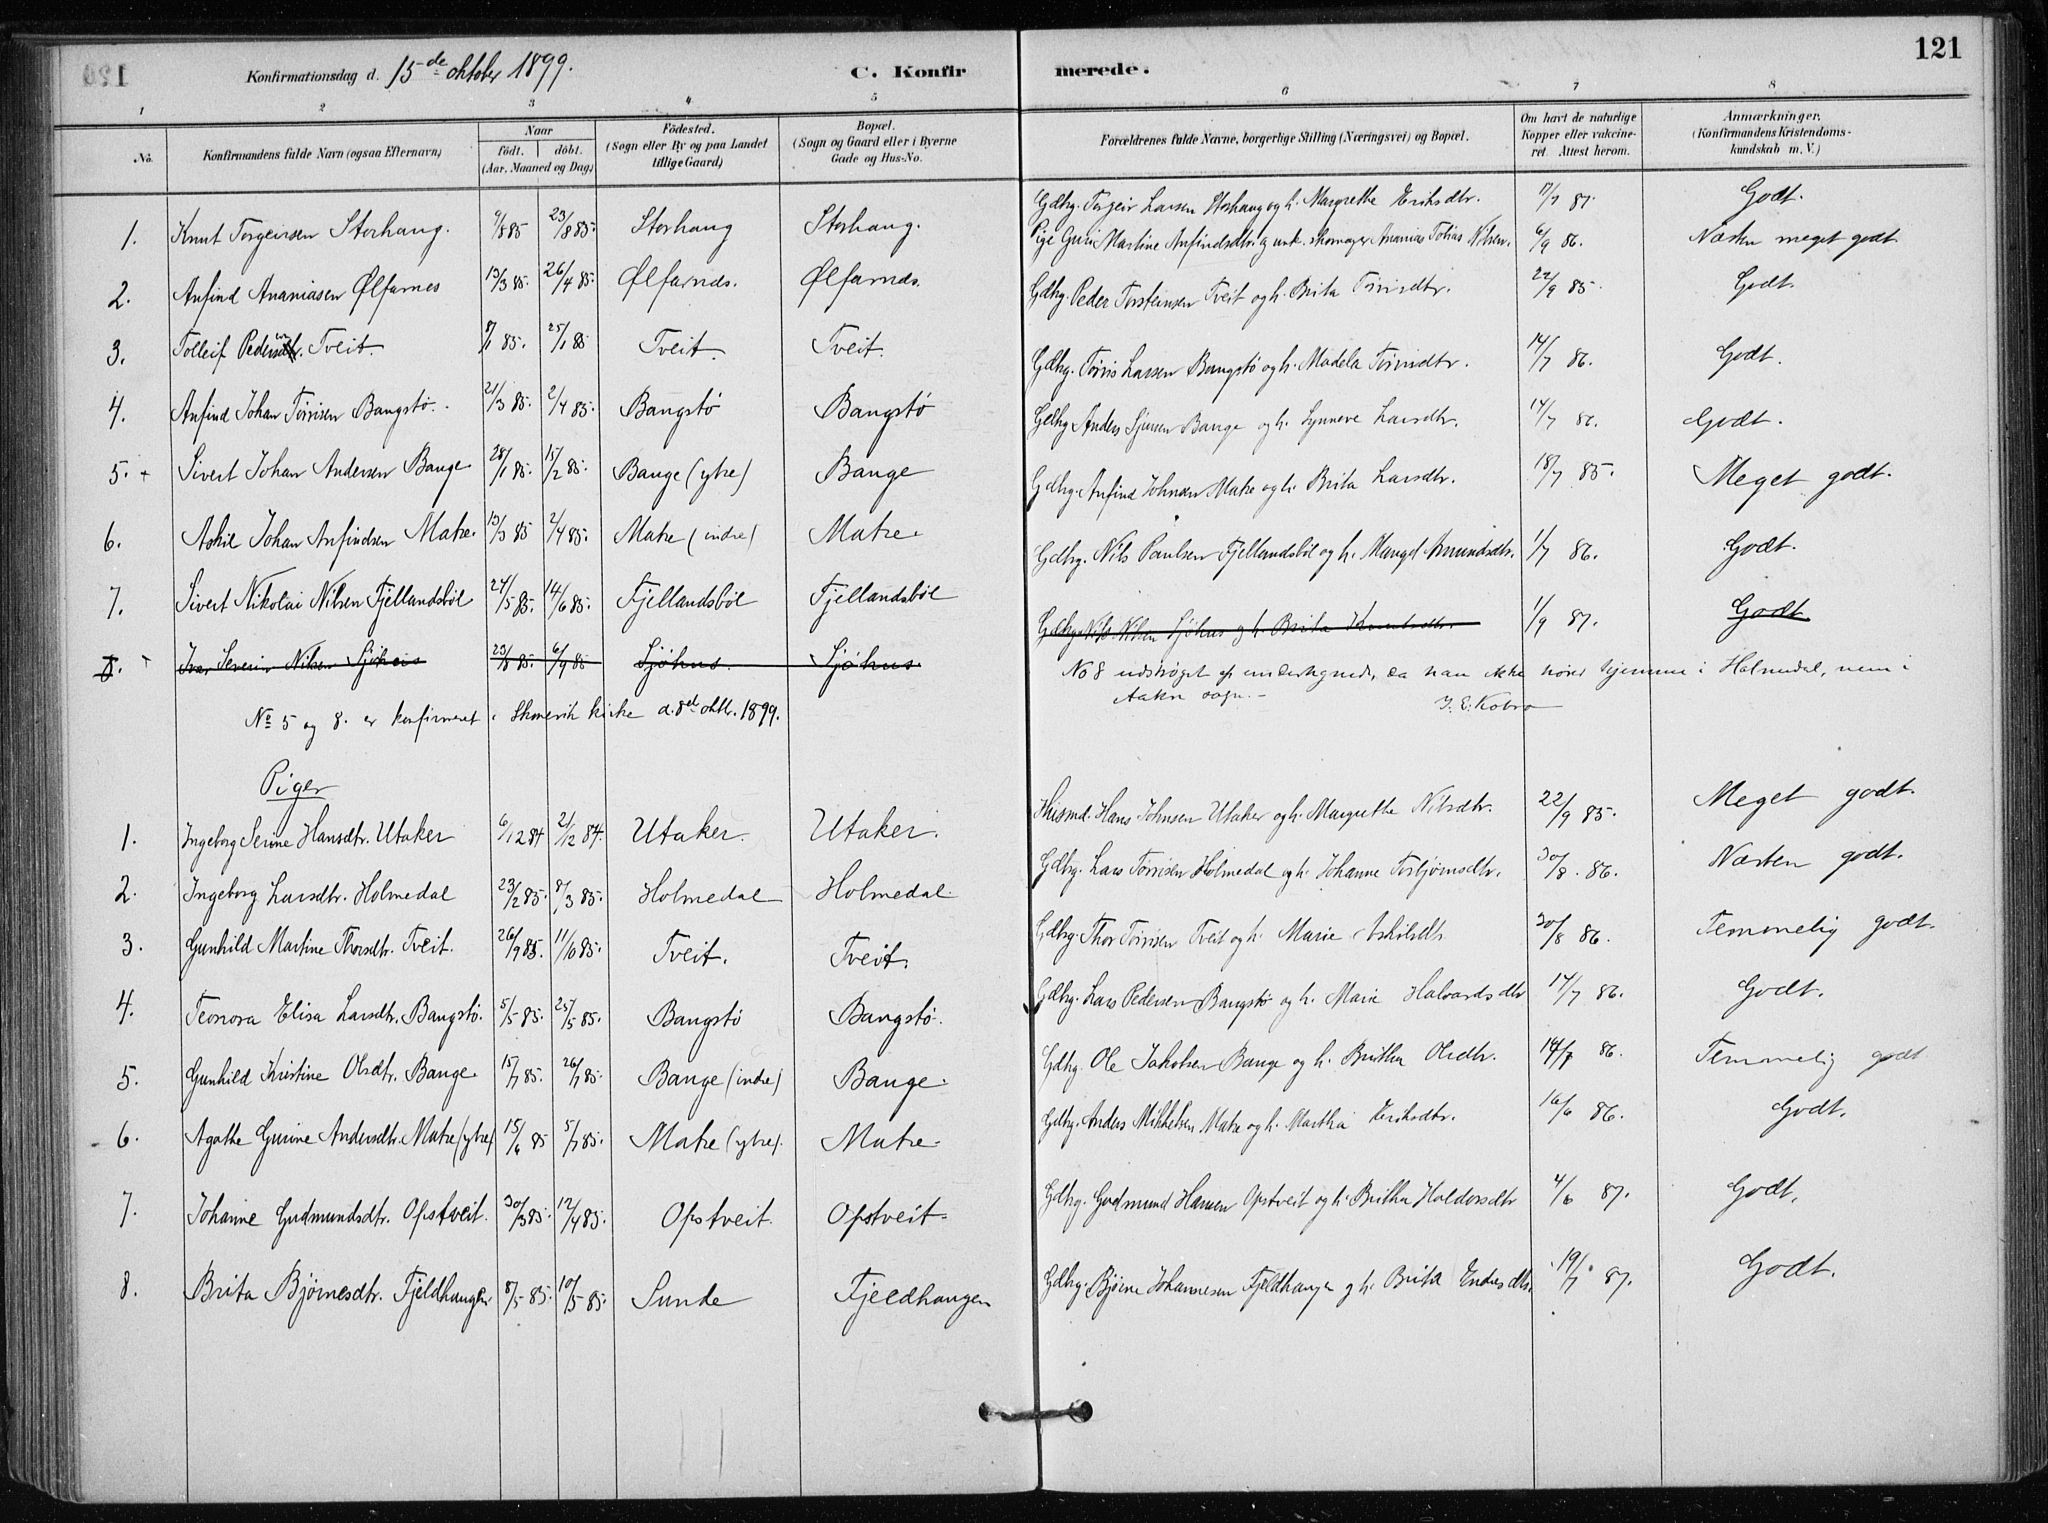 121
Konfirmationsdag d. 15de oktober 1899.
C. Konfir merede.
1 2 3 4 5 6 7 8
No. Konfirmandens fulde Navn (ogsaa Efternavn) Naar født. døbt. (Aar, Maaned og Dag) Födested. (Sogn eller By og paa Landet tillige Gaard) Bopæl. (Sogn og Gaard eller i Byerne Gade og Hus-No. Forældrenes fulde Navne, borgerlige Stilling (Næringsvei) og Bopæl. Om havt de naturlige Kopper eller vakcineret. Attest herom. Anmærkninger. (Konfirmandens Kristendomskundskab m. V.)
1. Knut Torgeirsen Storhang. 9/8 85 23/8 85. Storhang Storhang. Gdbg. Torgeir Larsen Storhang og h. Margrethe Eriksdtr. 17/7 87. Godt.
2. Anfind Ananiasen Ølfarnes 13/3 85. 26/4 85. Ølfarnæs. Ølfarnæs. Pige Guri Martine Anfindsdtr. og unk. skomager Ananias Tobias Nilsen. 6/9 86. Næsten meget godt
3. Tolleif Pedersen Tveit. 8/1 85. 25/1 85 Tveit. Tveit. Gdbg. Peder Torsteinsen Tveit og h. Brita Tørrisdtr. 22/9 85. Godt.
4. Anfind Johan Tørrisen Bangstø. 21/3 85. 2/4 85. Bangstø Bangstø Gdbg. Tørris Larsen Bangstø og h. Madela Tørrisdtr. 14/7 86. Godt.
5. + Sivert Johan Andersen Bauge 28/1 85. 15/2 85. Bauge (ytre) Bauge Gdbg Anders Sjursen Bauge og h. Synneve Larsdtr. 14/7 86. Godt.
6. Askil Johan Anfindsen Matre. 13/3 85 2/4 85. Matre (indre) Matre. Gdbg. Anfind Johnsen Matre og h. Brita Larsdtr. 18/7 85. Meget godt.
7. Sivert Nikolai Nilsen Fjellandsbøl 24/5 85. 14/6 85. Fjellandsbøl Fjellandsbøl Gdbg. Nils Paulsen Fjellandsbøl og h. Mangel Amundsdtr. 1/7 86. Godt.
8. + Ivar Severin Nilsen Sjøhus 23/8 85. 6/9 85 Sjøhus. Sjøhus. Gdbg. Nils Nilsen Sjøhus og h. Brita Knutsdtr. 1/9 87. Godt
No 8 udstrøget af undertegnede, da han ikke hører hjemme i Holmedal, men i
Aakre sogn. — J. E. Kobro
No 5 og 8. er konfirmeret i Skonevik kirke d. 8de oktbr. 1899.
Piger
1. Ingeborg Serine Hansdtr. Utaker 6/12 84 21/12 84. Utaker. Utaker. Husmd. Hans Johnsen Utaker og h. Margrethe Nilsdtr. 22/9 85. Meget godt.
2. Ingeborg Larsdtr. Holmedal 23/2 85. 8/3 85. Holmedal Holmedal. Gdbg. Lars Tørrisen Holmedal og h. Johanne Torbjørnsdtr. 30/8. 86. Næsten godt.
3. Gunhild Martine Thorsdtr. Tveit. 26/9 85. 11/10 85. Tveit. Tveit. Gdbg. Thor Tørrisen Tveit og h. Marie Askilsdtr 30/8 86. Temmelig godt.
4. Teonora Elisa Larsdtr. Bangstø. 5/5 85. 25/5 85. Bangstø Bangstø. Gdbg. Lars Pedersen Bangstø og h. Marie Halvardsdtr 17/7 86. Godt.
5. Gunhild Kristine Olsdtr. Bauge. 15/7 85. 26/7 85. Bauge (indre) Bauge. Gdbg. Ole Jakobsen Bauge og h. Britha Olsdtr. 14/7 86. Temmelig godt
6. Agathe Gurine Andersdtr. Matre (ytre) 15/6 85 5/7 85. Matre (ytre). Matre. Gdbg. Anders Mikkelsen Matre og h. Martha Eriksdtr. 16/6 86. Godt.
7. Johanne Gudmundsdtr. Opstveit. 30/3 85. 12/4 85. Opstveit. Opstveit. Gdbg. Godmund Hansen Opstveit og h. Britha Haldorsdtr 4/6 87. Godt.
8. Brita Bjørnesdtr. Fjeldhaugen 8/5 85. 10/5 85. Sunde Fjeldhaugen Gdbg. Bjørne Johannesen Fjeldhaugen og h. Brita Endresdtr. 19/7 87. Godt.